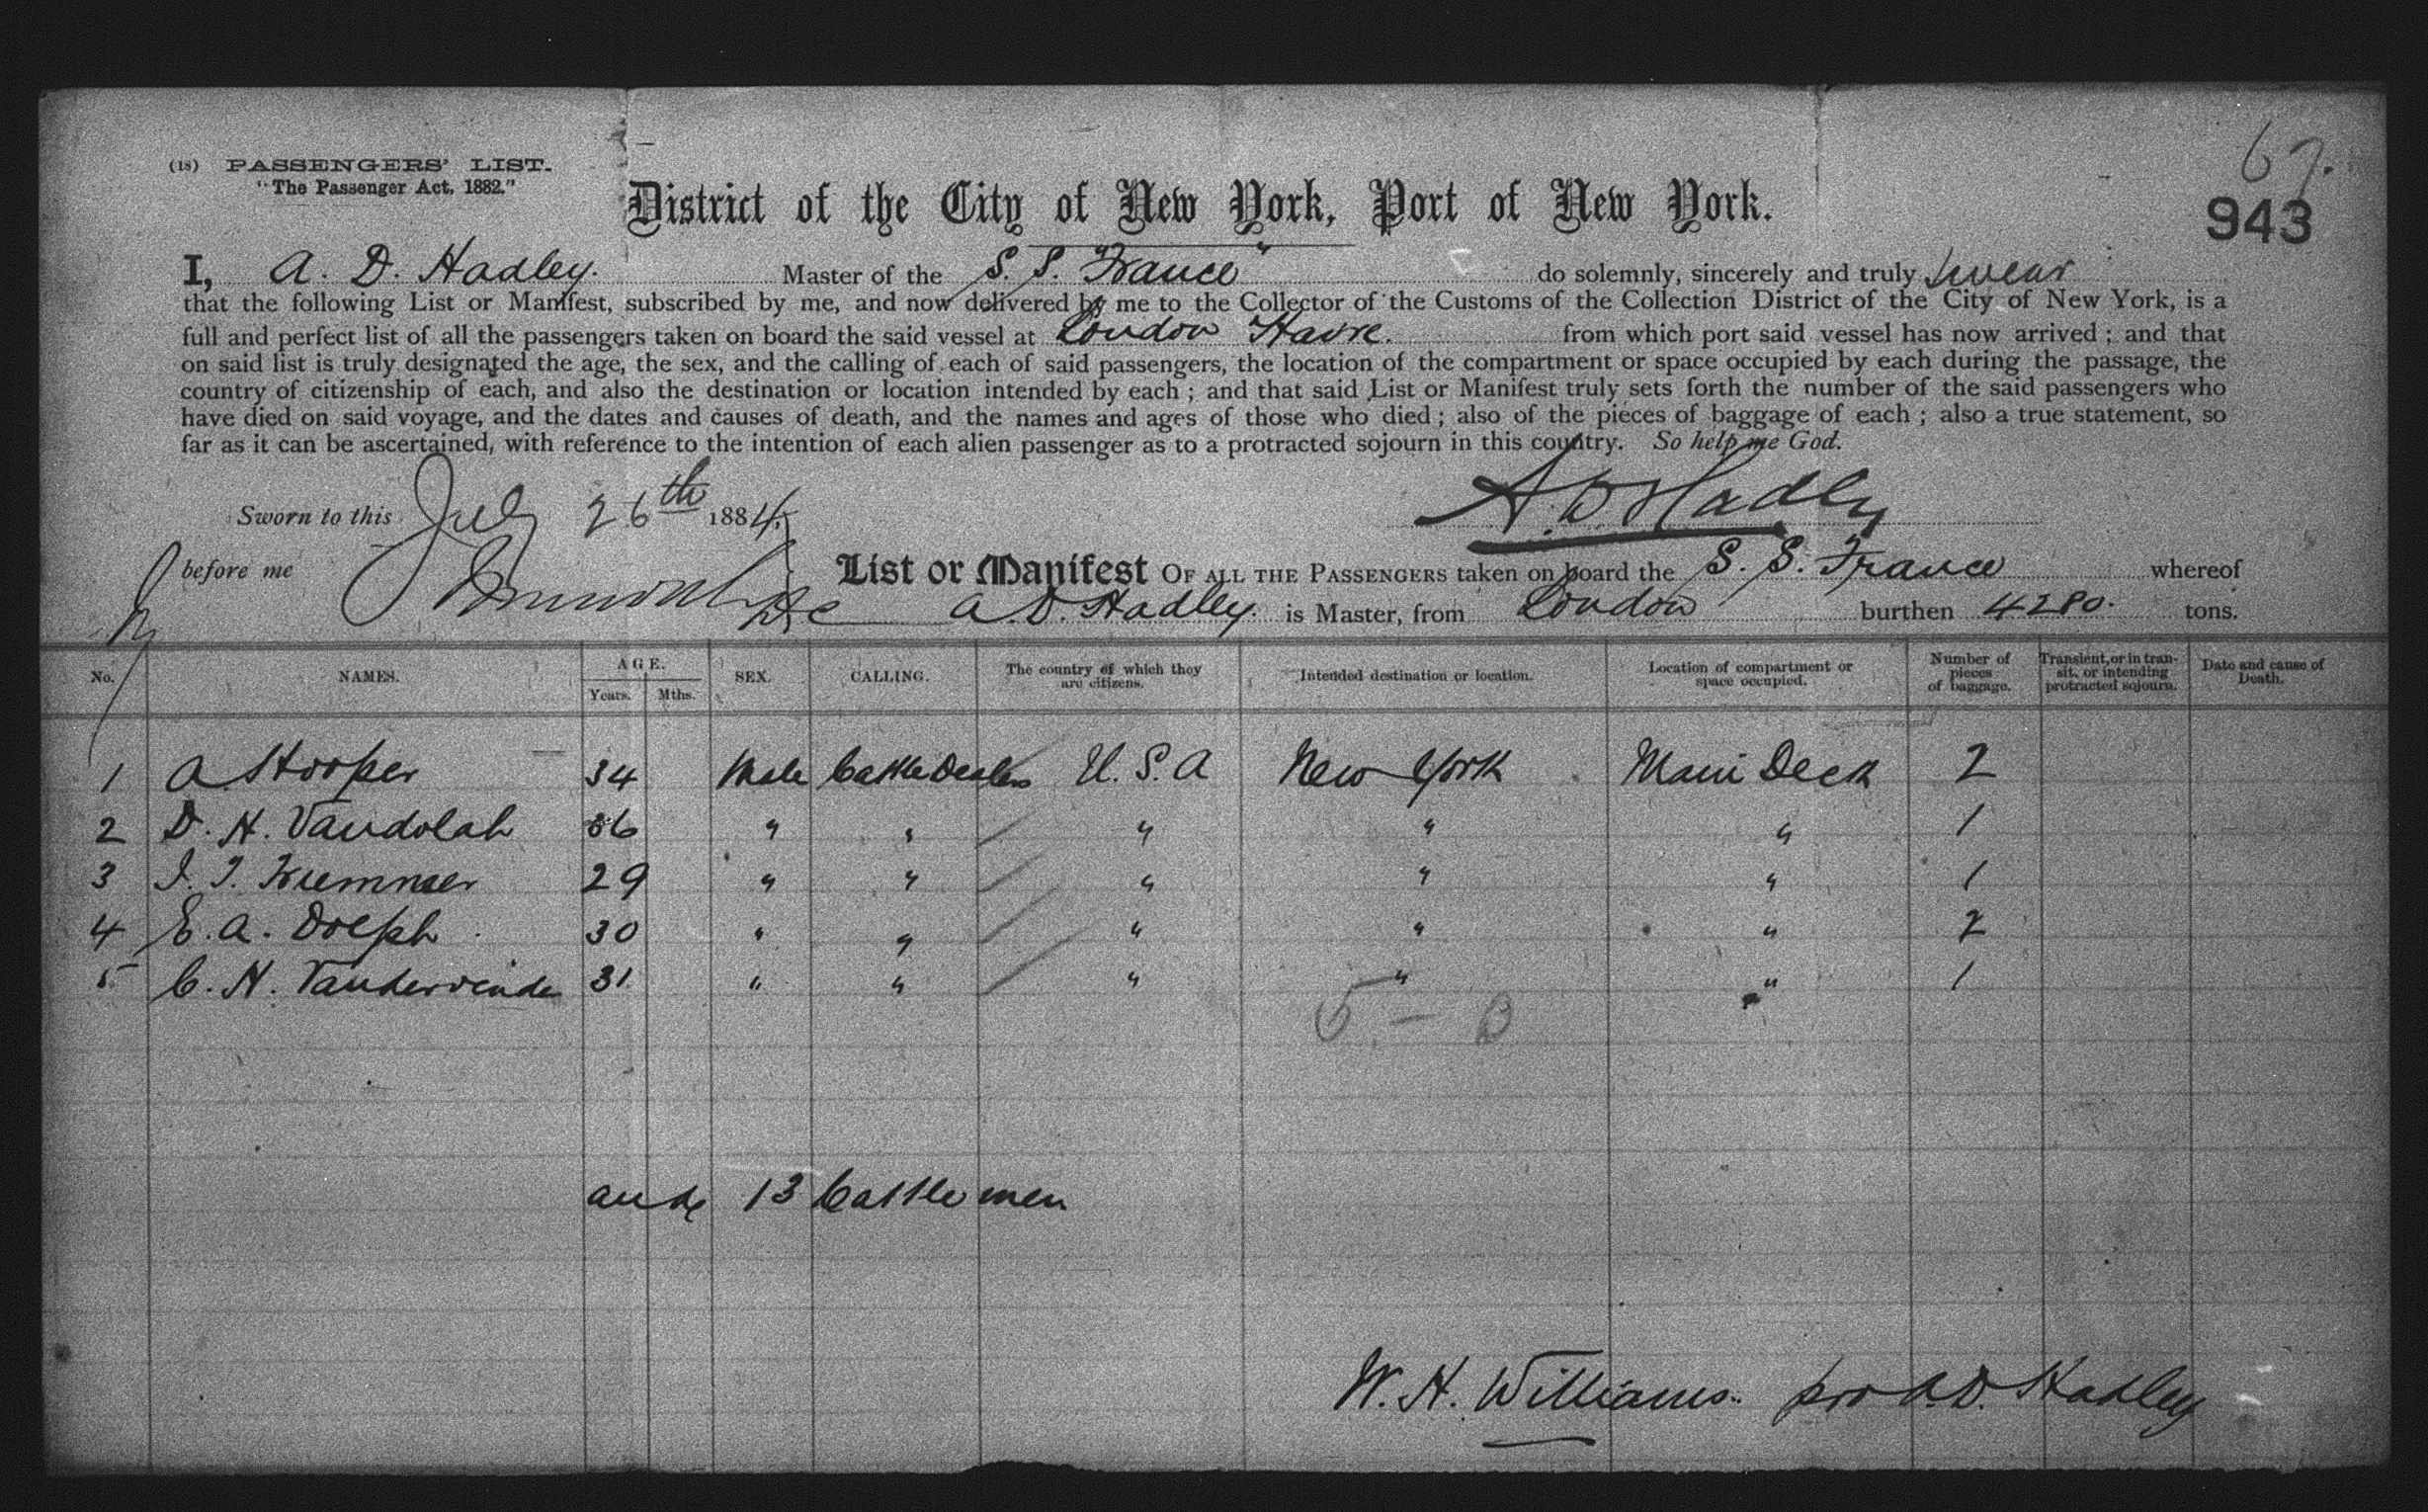 67.
(18) PASSENGERS' LIST.
"The Passenger Act, 1882."
District of the City of New York, Port of New York.
943
I, A. D. Hadley. Master of the S. S. "France" do solemnly, sincerely and truly swear
that the following List or Manifest, subscribed by me, and now delivered by me to the Collector of the Customs of the Collection District of the City of New York, is a
full and perfect list of all the passengers taken on board the said vessel at London Havre. from which port said vessel has now arrived; and that
on said list is truly designated the age, the sex, and the calling of each of said passengers, the location of the compartment or space occupied by each during the passage, the
country of citizenship of each, and also the destination or location intended by each; and that said List or Manifest truly sets forth the number of the said passengers who
have died on said voyage, and the dates and causes of death, and the names and ages of those who died; also of the pieces of baggage of each; also a true statement, so
far as it can be ascertained, with reference to the intention of each alien passenger as to a protracted sojourn in this country. So help me God.
Sworn to this July 26th 1884. A. D. Hadley
before me
List or Manifest OF ALL THE PASSENGERS taken on board the S. S. France whereof
A. D. Hadley. is Master, from London burthen 4280. tons.
No. NAMES. AGE. Years. Mths. SEX. CALLING. The country of which they are citizens. Intended destination or location. Location of compartment or space occupied. Number of pieces of baggage. Transient, or in transit, or intending protracted sojourn. Date and cause of Death.
1 A Hooper 34 Male Cattle Dealers U. S. A New York Main Deck 2
2 D. H. Vandolah 36 " " " " " 1
3 29 " " " " " 1
4 E. A. Dolph 30 " " " " " 2
5 C. H. 31 " " " " " 1
5 - 0
and 13 Cattle men
W. H. Williams. pro A. D. Hadley